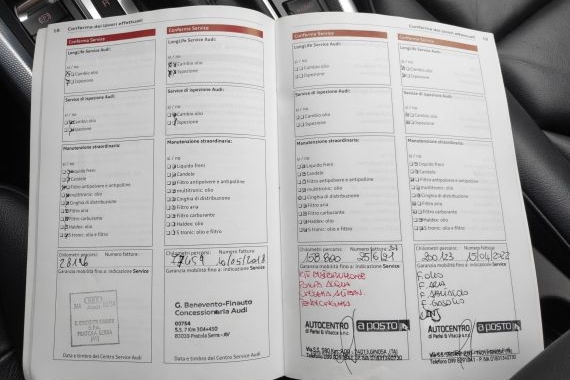 18 Conferma dei lavori effettuati
Conferma Service
LongLife Service Audi:
sì / no
Cambio olio
Ispezione
Service di ispezione Audi:
sì / no
Cambio olio
Ispezione
Manutenzione straordinaria:
sì / no
Liquido freni
Candele
Filtro antipolvere e antipolline
multitronic: olio
Cinghia di distribuzione
Filtro aria
Filtro carburante
Haldex: olio
S tronic: olio e filtro
Chilometri percorsi: Numero fattura:
Garanzia mobilità fino a: indicazione Service
Data e timbro del Centro Service Audi
Conferma Service
LongLife Service Audi:
sì / no
Cambio olio
Ispezione
Service di ispezione Audi:
sì / no
Cambio olio
Ispezione
Manutenzione straordinaria:
sì / no
Liquido freni
Candele
Filtro antipolvere e antipolline
multitronic: olio
Cinghia di distribuzione
Filtro aria
Filtro carburante
Haldex: olio
S tronic: olio e filtro
Chilometri percorsi: Numero fattura:
10/05/2018
Garanzia mobilità fino a: indicazione Service
G. Benevento-Finauto
Concessionaria Audi
00764
S.S. 7 Km 304+450
83039 Pratola Serra - AV
Data e timbro del Centro Service Audi
Conferma dei lavori effettuati 19
Conferma Service
LongLife Service Audi:
sì / no
Cambio olio
Ispezione
Service di ispezione Audi:
sì / no
Cambio olio
Ispezione
Manutenzione straordinaria:
sì / no
Liquido freni
Candele
Filtro antipolvere e antipolline
multitronic: olio
Cinghia di distribuzione
Filtro aria
Filtro carburante
Haldex: olio
S tronic: olio e filtro
Chilometri percorsi: Numero fattura:
158.800 25/6/21
Garanzia mobilità fino a: indicazione Service
KIT DISTRIBUZIONE
POMPA ACQUA
AUTOCENTRO a posto
Conferma Service
LongLife Service Audi:
sì / no
Cambio olio
Ispezione
Service di ispezione Audi:
sì / no
Cambio olio
Ispezione
Manutenzione straordinaria:
sì / no
Liquido freni
Candele
Filtro antipolvere e antipolline
multitronic: olio
Cinghia di distribuzione
Filtro aria
Filtro carburante
Haldex: olio
S tronic: olio e filtro
Chilometri percorsi: Numero fattura:
200123 15/04/2022
Garanzia mobilità fino a: indicazione Service
F. OLIO
F. ARIA
F. GASOLIO
AUTOCENTRO a posto